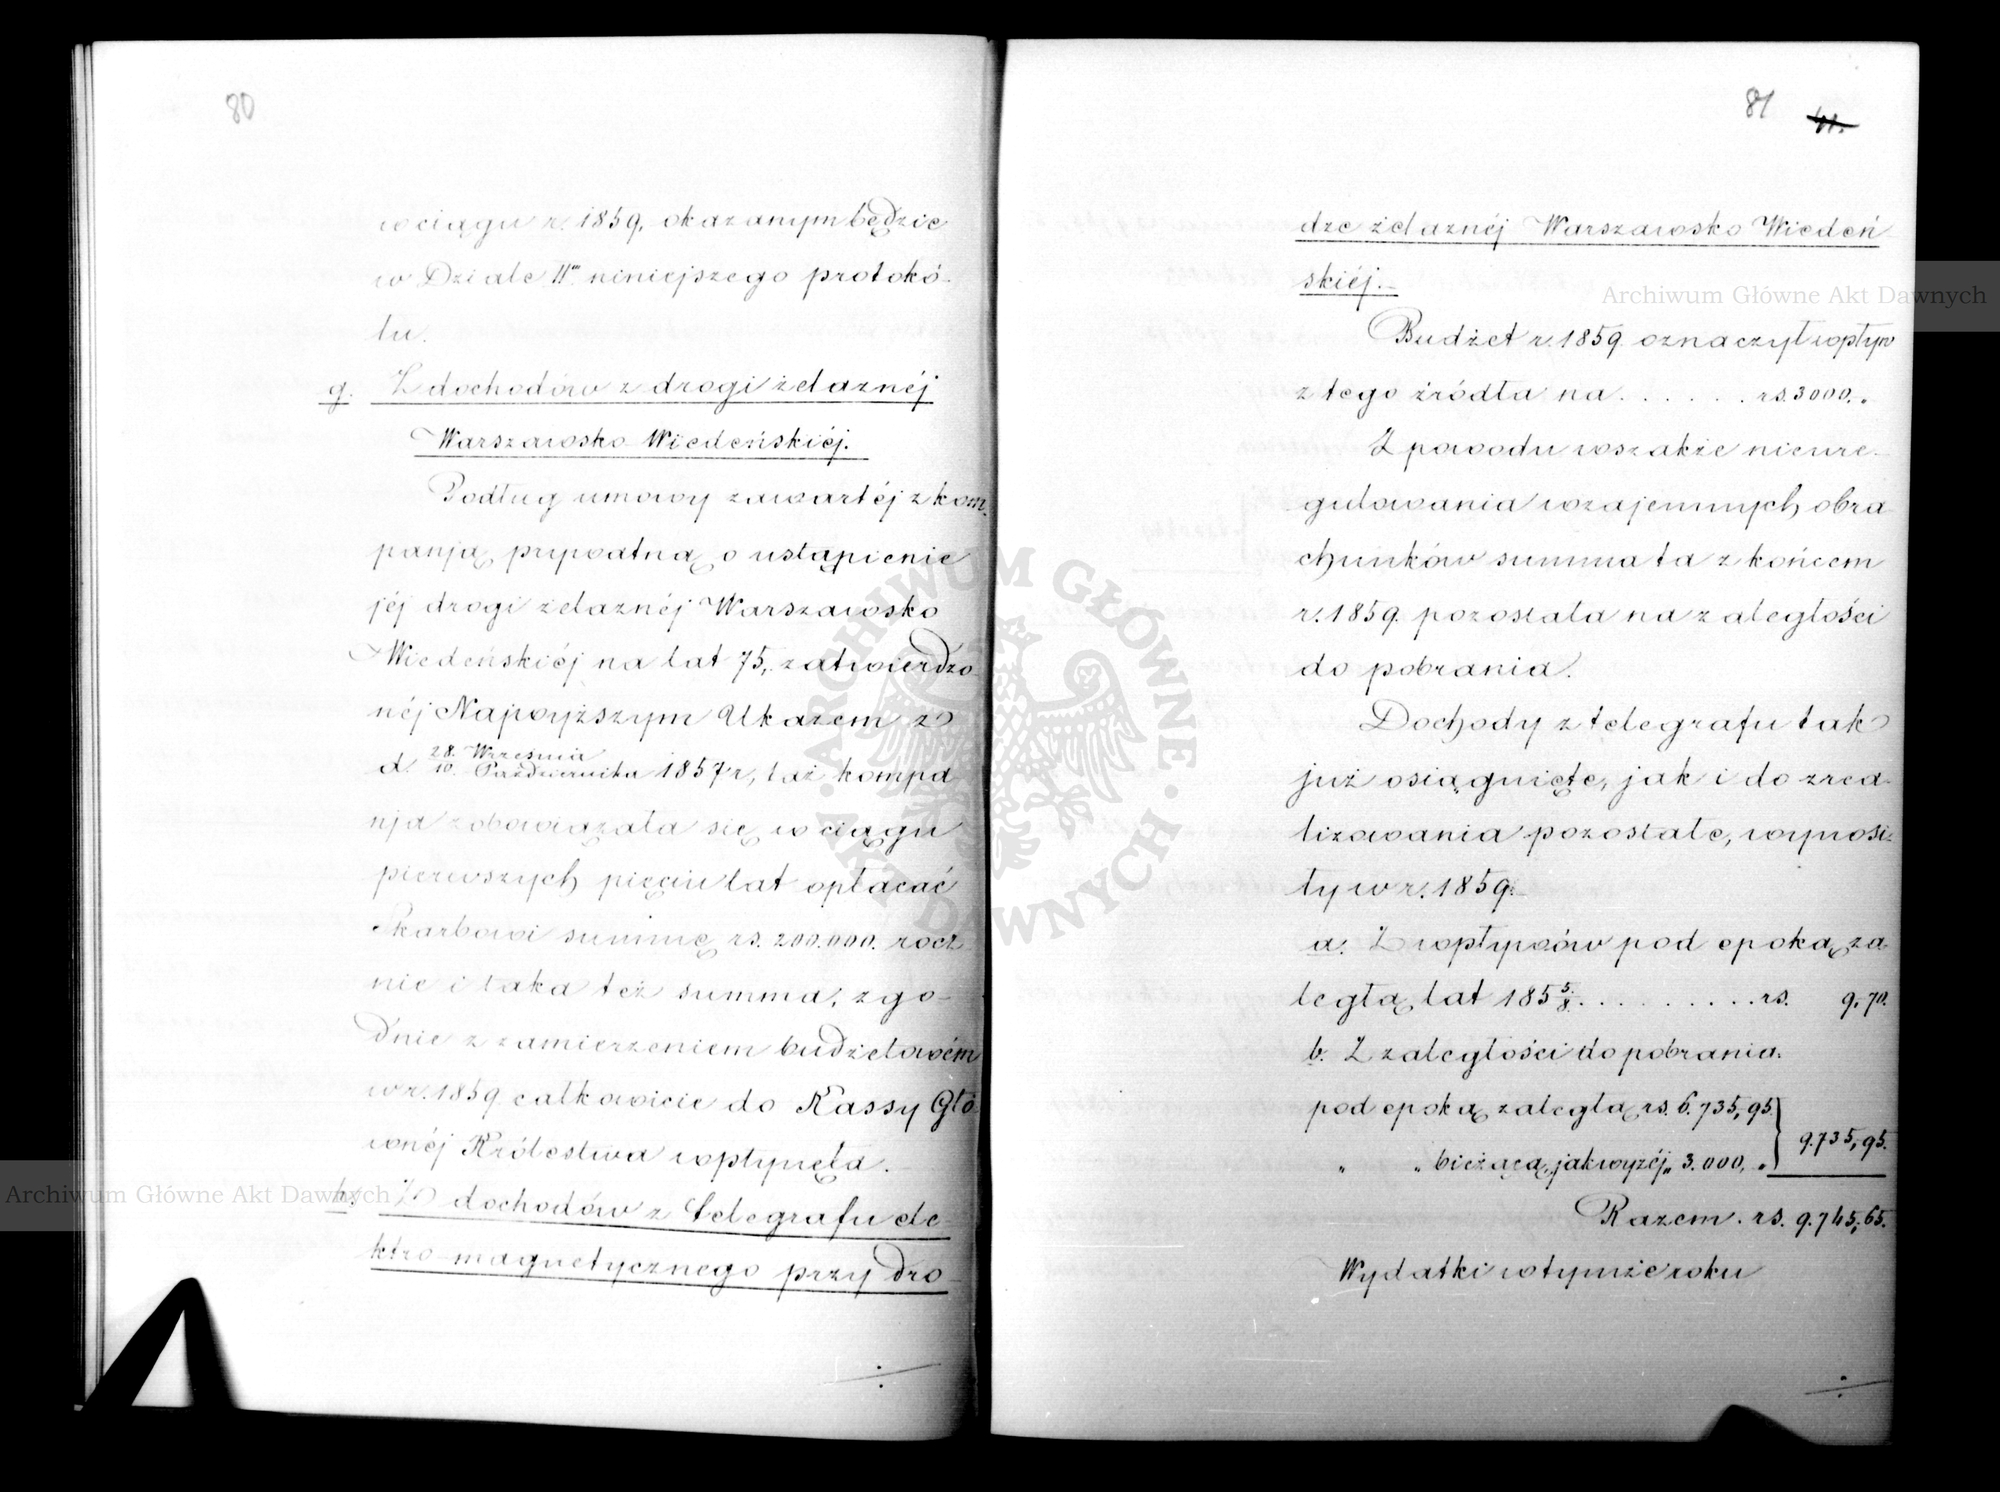 80
w ciągu r. 1859, okazanym będzie
w Dziale IIm niniejszego protokó-
łu.
g. Z dochodów z drogi żelaznéj
Warszawsko Wiedeńskiéj.
Podług umowy zawartéj z kom-
panją prywatną o ustąpienie
jéj drogi żelaznéj Warszawsko
Wiedeńskiéj na lat 75, zatwierdzo-
néj Najwyższym Ukazem z
d. 28. Września / 10. Października 1857 r, taż kompa
nja zobowiązała się w ciągu
pierwszych pięciu lat opłacać
Skarbowi summę rs. 200.000. rocz-
nie i taka też summa, zgo-
dnie z zamierzeniem budżetowém
w r. 1859 całkowicie do Kassy Głó-
wnéj Królestwa wpłynęła.
h. Z dochodów z telegrafu ele
ktro-magnetycznego przy dro-
81 41.
dze żelaznéj Warszawsko Wiedeń
skiéj.
Budżet r. 1859 oznaczył wpływ
z tego źródła na . . . . . . rs. 3000. „
Z powodu wszakże nieure-
gulowania wzajemnych obra
chunków summa ta z końcem
r. 1859 pozostała na zaległości
do pobrania.
Dochody z telegrafu tak
już osiągnięte, jak i do zrea-
lizowania pozostałe, wynosi-
ły w r. 1859:
a. Z wpływów pod epoką za
ległą lat 185 5/8. . . . . . . . . . rs. 9,70.
b. Z zaległości do pobrania.
pod epoką zaległą rs. 6.735,95.
9.735,95.
„ „ bieżącą, jak wyżéj „ 3.000, „
Razem . rs. 9.745,65.
Wydatki w tymże roku
Archiwum Główne Akt Dawnych
Archiwum Główne Akt Dawnych
ARCHIWUM GŁÓWNE · AKT DAWNYCH ·